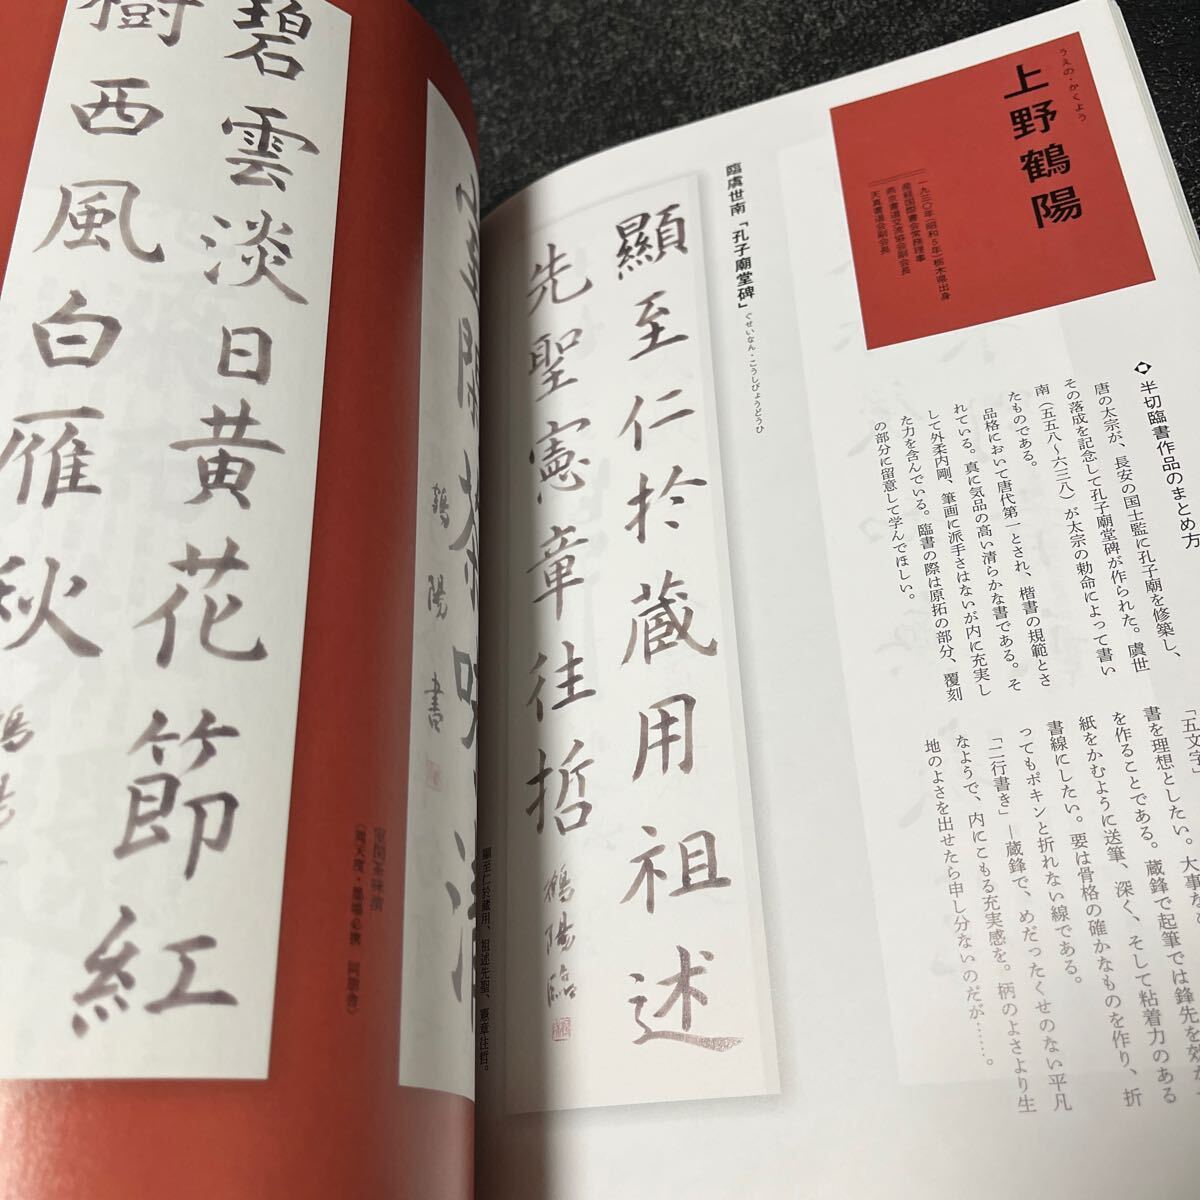 上野鶴陽
うえの・かくよう
一九三〇年(昭和5年)栃木県出身
産経国際書会常務理事
燕京書道交流協会副会長
天真書道会副会長
◇半切臨書作品のまとめ方
唐の太宗が、長安の国士監に孔子廟を修築し、
その落成を記念して孔子廟堂碑が作られた。虞世
南(五五八〜六三八)が太宗の勅命によって書い
たものである。
品格において唐代第一とされ、楷書の規範とさ
れている。真に気品の高い清らかな書である。そ
して外柔内剛、筆画に派手さはないが内に充実し
た力を含んでいる。臨書の際は原拓の部分、覆刻
の部分に留意して学んでほしい。
「五文字」
書を理想としたい。大事な
を作ることである。蔵鋒で起筆では鋒先を効か
紙をかむように送筆、深く、そして粘着力のある
書線にしたい。要は骨格の確かなものを作り、折
ってもポキンと折れない線である。
「二行書き」―蔵鋒で、めだったくせのない平凡
なようで、内にこもる充実感を。柄のよさより生
地のよさを出せたら申し分ないのだが……。
臨虞世南「孔子廟堂碑」
ぐせいなん・こうしびょうどうひ
顯至仁於蔵用祖述
先聖憲章往哲
鶴陽臨
顯至仁於蔵用、祖述先聖、憲章往哲。
鶴陽書
碧雲淡日黄花節紅
樹西風白雁秋